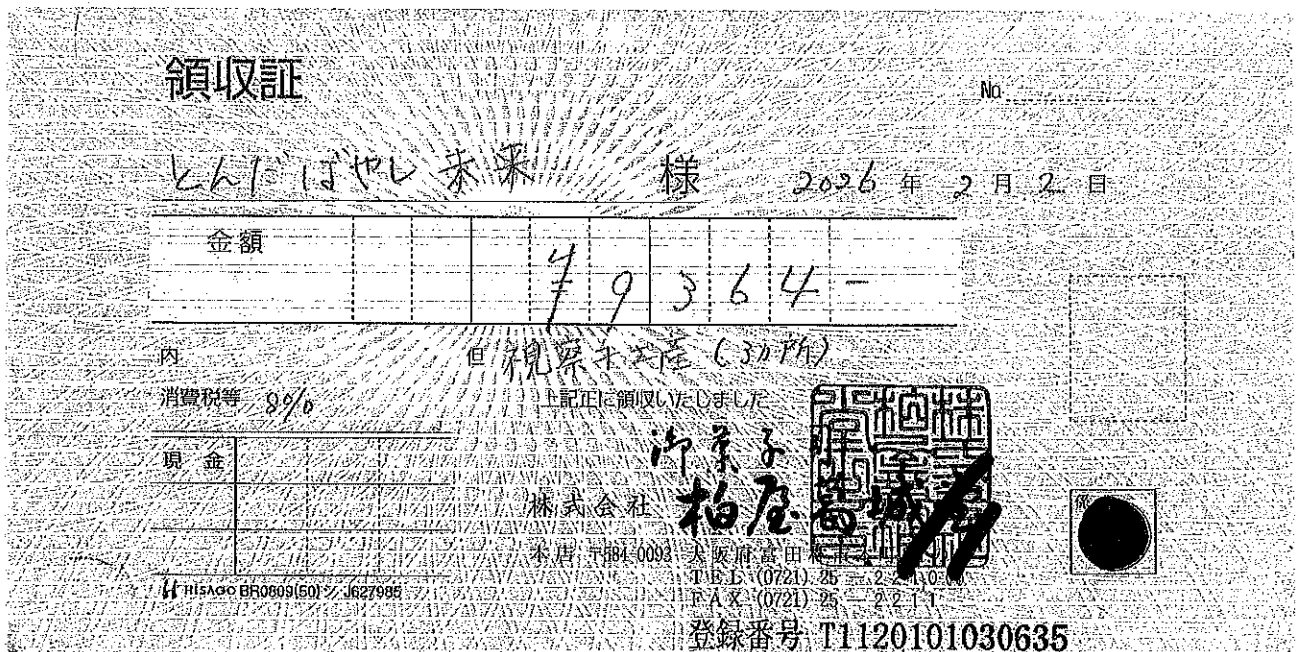 領収証
No.
とんだばやし未来 様 2026年2月2日
金額 ¥9364-
内 但 視察お土産(3カ所)
消費税等 8% 上記正に領収いたしました
現金
御菓子
株式会社 柏屋葛城堂
本店 〒584-0093 大阪府富田林市本町
TEL (0721) 25-
FAX (0721) 25-2211
HISAGO BR0809(50) J627985
登録番号 T1120101030635